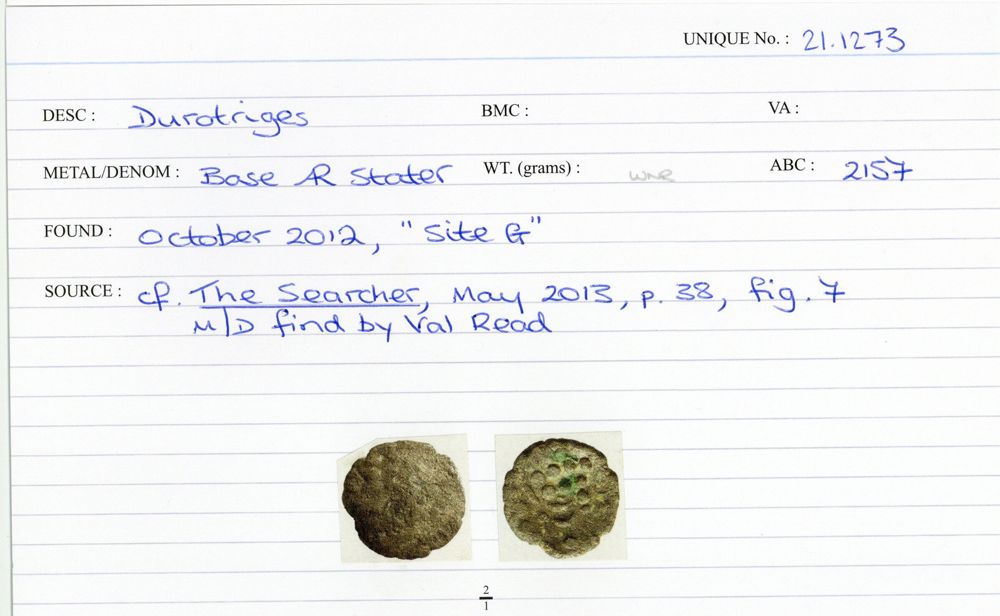 UNIQUE No. : 21.1273
DESC : Durotriges BMC : VA :
METAL/DENOM : Base AR Stater WT. (grams) : WNR ABC : 2157
FOUND : October 2012, "Site G"
SOURCE : cf. The Searcher, May 2013, p. 38, fig. 7
M/D find by Val Read
2
1